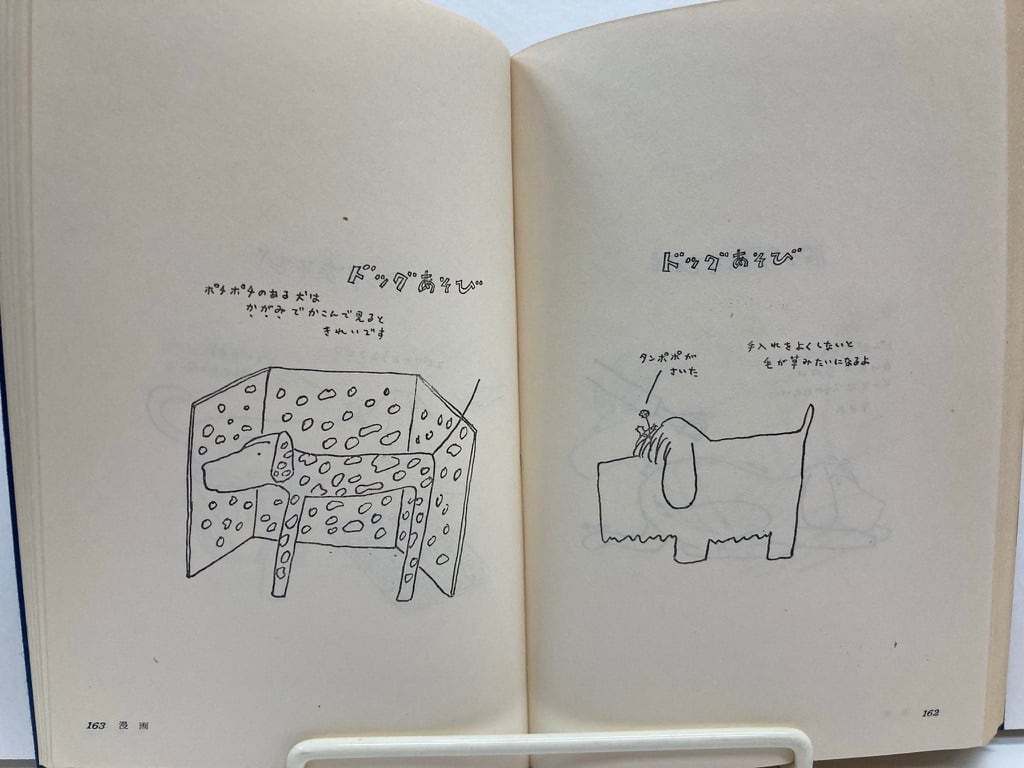 ドッグあそび
タンポポが
さいた
手入れをよくしないと
毛が草みたいになるよ
162
ドッグあそび
ポチポチのある犬は
かがみでかこんで見ると
きれいです
163 漫画